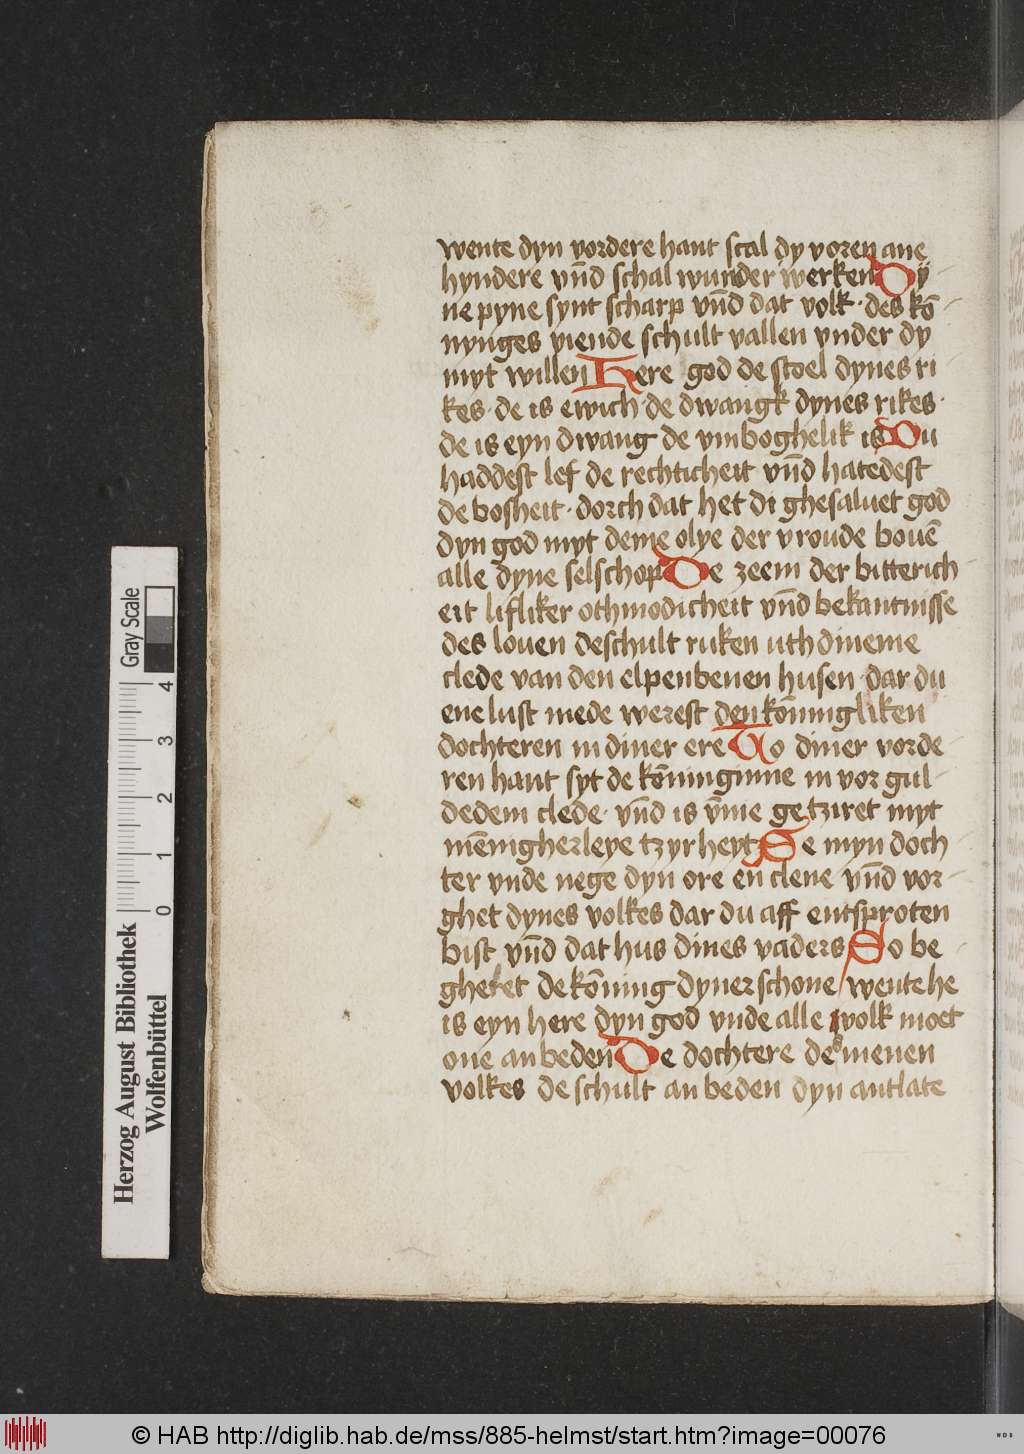 wente dyn vordere hant scal dy voren ane
hyndere vn̄d schal wunder werken Dÿ
ne pyne synt scharp vn̄d dat volk · des kō
nynges viende schult vallen vnder dy
myt willen Here god de stoel dynes ri
kes · de is ewich · de dwangk dynes rikes ·
de is eyn dwang de vmboghelik is Du
haddest lef de rechticheit vn̄d hatedest
de bosheit · dorch dat het di ghesaluet god
dyn god myt deme olye der vroude bouē
alle dyne selschop De zeem der bitterich
eit lifliker othmodicheit vn̄d bekantnisse
des louen de schult ruken uth dineme
clede van den elpenbenen husen dar du
ene lust mede werest den kōningliken
dochteren in diner ere To diner vorde
ren hant syt de kōninginne in vor gul
dedem clede · vn̄d is v̄me getziret myt
mēnigherleye tzyrheyt Se myn doch
ter vnde nege dyn ore en clene vn̄d vor
ghet dynes volkes dar du aff entsproten
bist vn̄d dat hus dines vaders So be
gheret de kōning dyner schone / wente he
is eyn here dyn god vnde alle volk moet
one an beden De dochtere de menen
volkes de schult an beden dyn antlate
Gray Scale
0 1 2 3 4
Herzog August Bibliothek
Wolfenbüttel
© HAB http://diglib.hab.de/mss/885-helmst/start.htm?image=00076